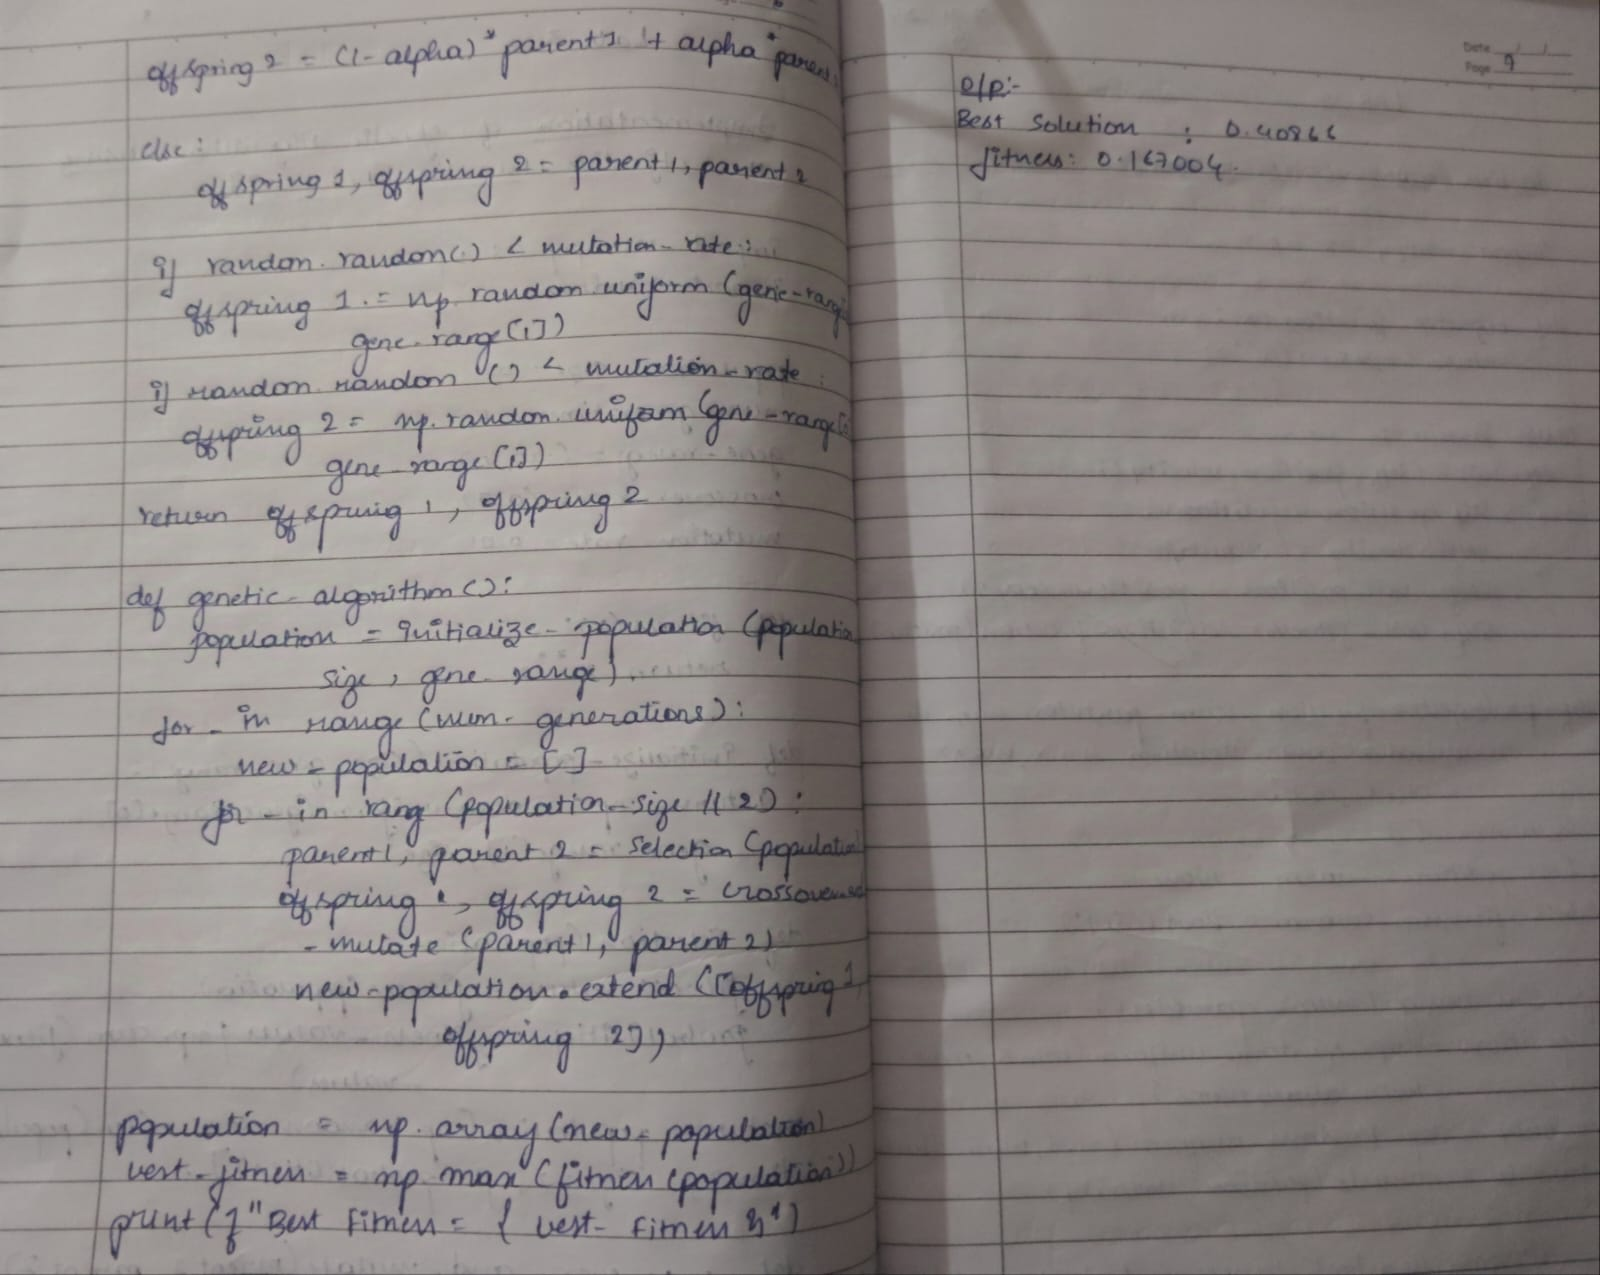 offspring 2 = (1 - alpha) * parent 1 + alpha * parent
else :
offspring 1, offspring 2 = parent 1, parent 2
if random. random() < mutation - rate :
offspring 1 . = np random. uniform (gene - range
gene - range [1])
if random random () < mutation - rate :
offspring 2 = np. random. uniform (gene - range [
gene range [1])
return offspring 1, offspring 2
def genetic - algorithm () :
population = initialize - population (population
size , gene range)
for - in range (num - generations) :
new = population = [ ]
for - in rang (population - size // 2) :
parent 1, parent 2 = Selection (population
offspring 1, offspring 2 = crossover
- mutate (parent 1, parent 2)
new - population . extend ([offspring 1
offspring 2]),
population = np. array (new = population)
vest - fitness = np max (fitness (population))
print (f "Best Fitness = { vest - fitness }")
Date / /
Page 9
O/P:-
Best Solution : 0.40866
fitness : 0.167004.